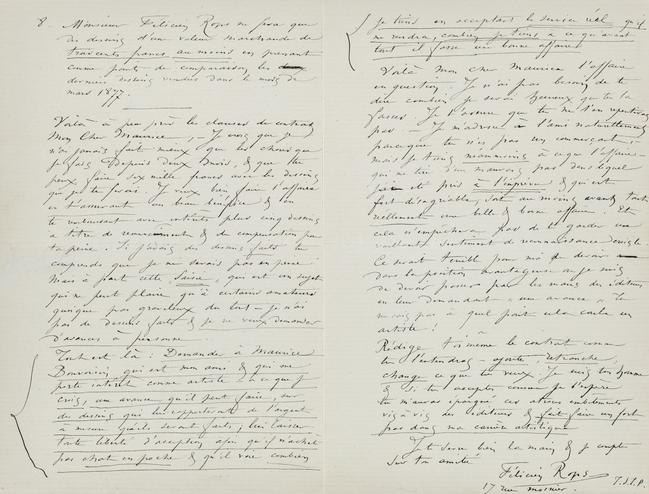 8. Monsieur Félicien Rops ne fera que
des dessins d'un valeur marchande de
trois cents francs au moins en prenant
comme point de comparaison, les
derniers dessins vendus dans le mois de
mars 1877.
Voilà à peu près les clauses du contrat,
Mon Cher Maurice, - Je crois que je
n'ai jamais fait mieux que les choses que
je fais depuis deux mois, & que tu
peux faire dix mille francs avec les dessins
que je te ferais. Je veux bien faire l'affaire
en t'assurant un beau bénéfice & en
te remboursant avec intérêts plus cinq dessins
à titre de & de compensation pour
ta peine. Si j'avais des dessins faits tu
comprends que je ne serais pas en peine
Mais à part cette Saisie, qui est un sujet
qui ne peut plaire qu'à certains amateurs
quoique pas graveleux du tout - je n'ai
pas de dessins faits & je ne veux demander
d'avances à personne.
Tout est là : Demander à Maurice
Bonvoisin, qui est mon ami & qui me
porte intérêt comme artiste à ce que je
crois, une avance qu'il peut faire, sur
des dessins qui lui rapporteront de l'argent
à mesure qu'ils seront faits; lui laisser
toute liberté d'acception afin qu'il n'achète
pas chat en poche & qu'il voie combien
je tiens en acceptant le service réel qu'il
me rendra, combien je tiens à ce qu'avant
tout il fasse une bonne affaire
Voilà mon cher Maurice l'affaire
en question. Je n'ai pas besoin de te
dire combien je serai heureux que tu la
fasses. Je t'assure que tu ne t'en repentiras
pas - Je m'adresse à l'ami naturellement
parceque tu n'es pas un commerçant,
mais je tiens néanmoins à ce que l'affaire -
qui me tire d'un mauvais pas dans lequel
j'ai été pris à l'improviste & qui est
fort désagréable, soit au moins avant tout
réellement une belle & bonne affaire. Et
cela n'empêchera pas de te garder un
sentiment de reconnaissance
Ce serait terrible pour moi de devoir
dans la position avantageuse où je suis
de devoir passer par les mains des éditeurs
en leur demandant « une avance » Tu
ne sais pas à quel point cela coule un
artiste !
Rédige toi même le contrat comme
tu l'entendras - ajoute, retranche,
change ce que tu veux. Je suis ton homme
& Si tu acceptes comme je l'espère
tu m'auras épargné ces atroces embêtements
vis à vis des éditeurs & fait faire un fort
pas dans ma carrière artistique
Je te serre bien la main & je compte
sur ton amitié
Félicien Rops
17 rue Mosnier. T.S.V.P.